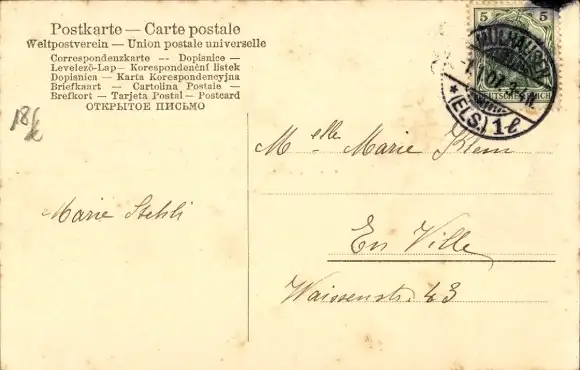 Postkarte — Carte postale
Weltpostverein — Union postale universelle
Correspondenzkarte — Dopisnice —
Levelező-Lap — Korespondenční listek
Dopisnica — Karta Korespondencyjna
Briefkaart — Cartolina Postale —
Brefkort — Tarjeta Postal — Postcard
ОТКРЫТОЕ ПИСЬМО
5 5
MÜLHAUSEN
1.1.07
(ELS.) 1 e
DEUTSCHES REICH
Melle Marie Klem
Marie Stehli
En Ville
Waissenstr. 43